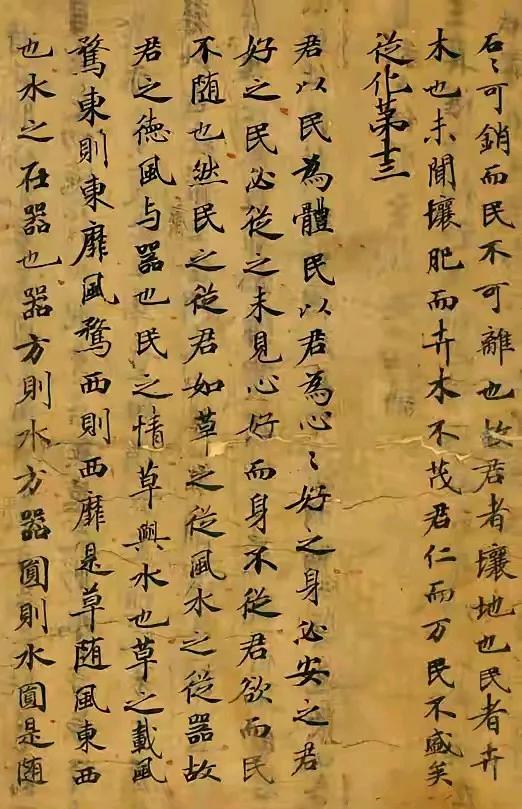 石〻可銷而民不可離也故君者壤地也民者卉
木也未聞壤肥而卉木不茂君仁而万民不盛矣
従化第十三
君以民為體民以君為心〻好之身必安之君
好之民必従之未見心好而身不従君欲而民
不随也然民之従君如草之従風水之従器故
君之徳風与器也民之情草與水也草之載風
鶩東則東靡風鶩西則西靡是草随風東西
也水之在器也器方則水方器圓則水圓是随